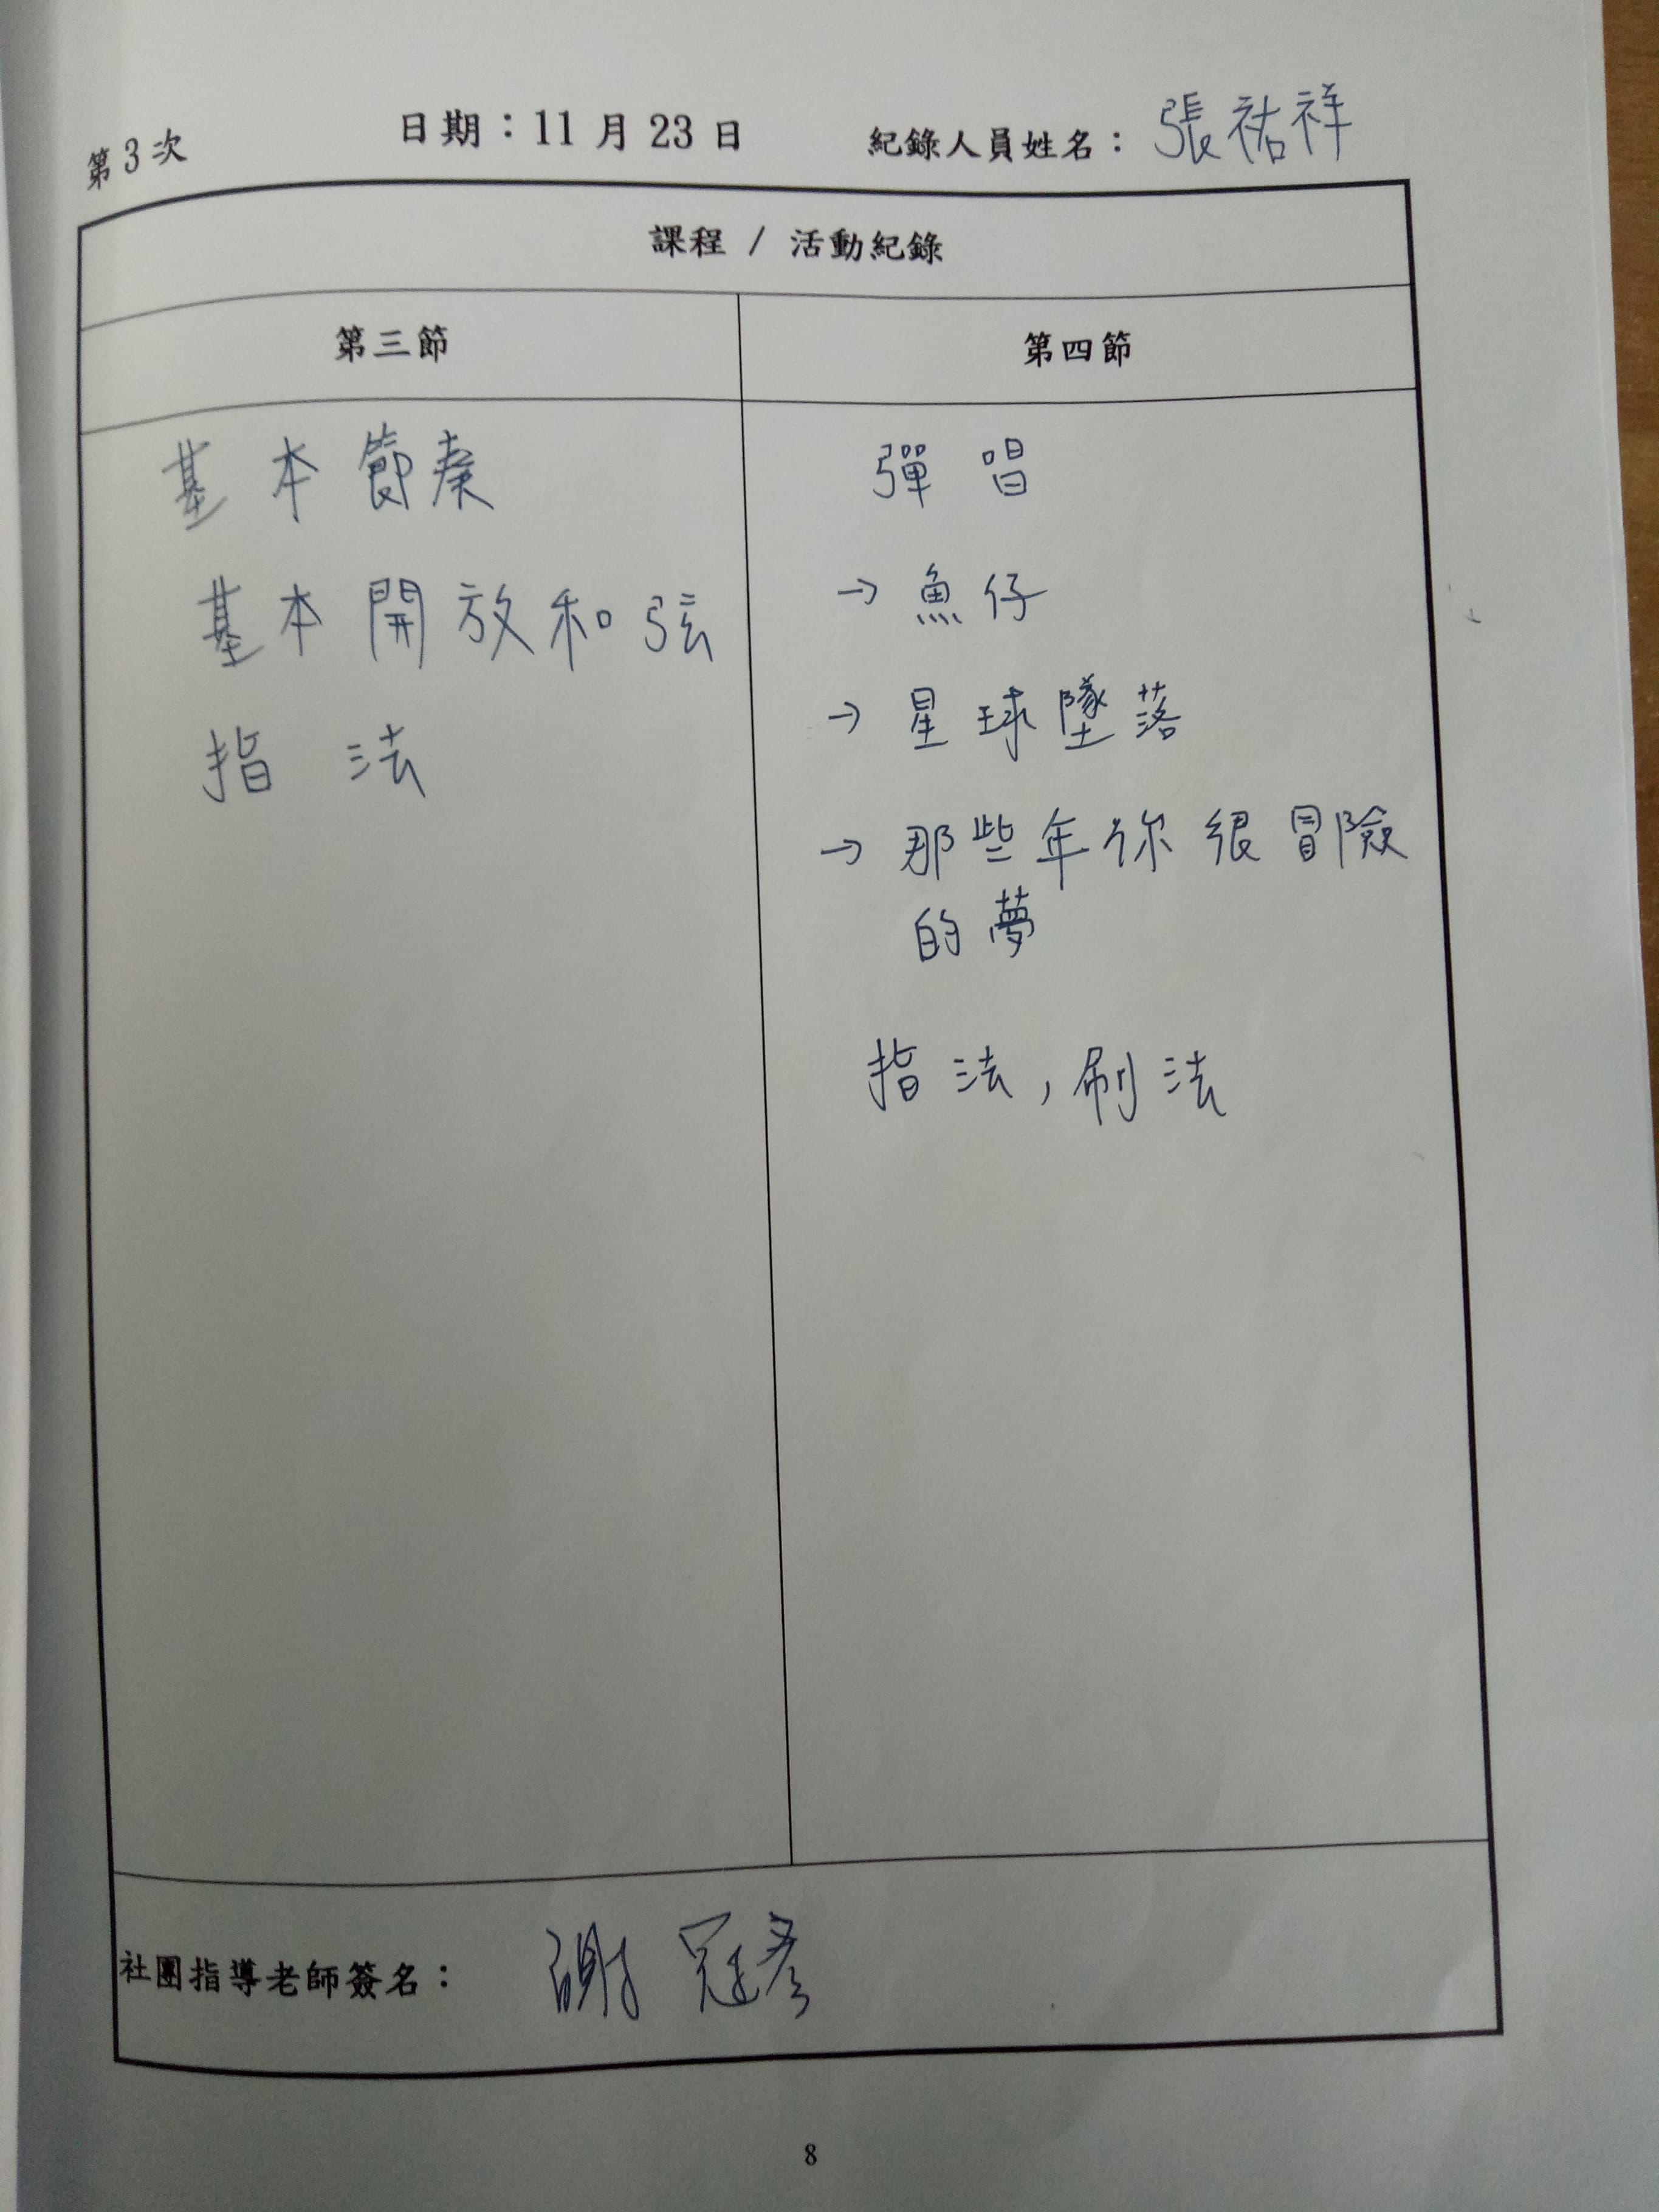 第3次 日期：11 月 23 日 紀錄人員姓名：張祐祥
課程 / 活動紀錄
第三節
基本節奏
基本開放和弦
指法
第四節
彈唱
→ 魚仔
→ 星球墜落
→ 那些年你很冒險
的夢
指法，刷法
社團指導老師簽名：謝冠彥
8